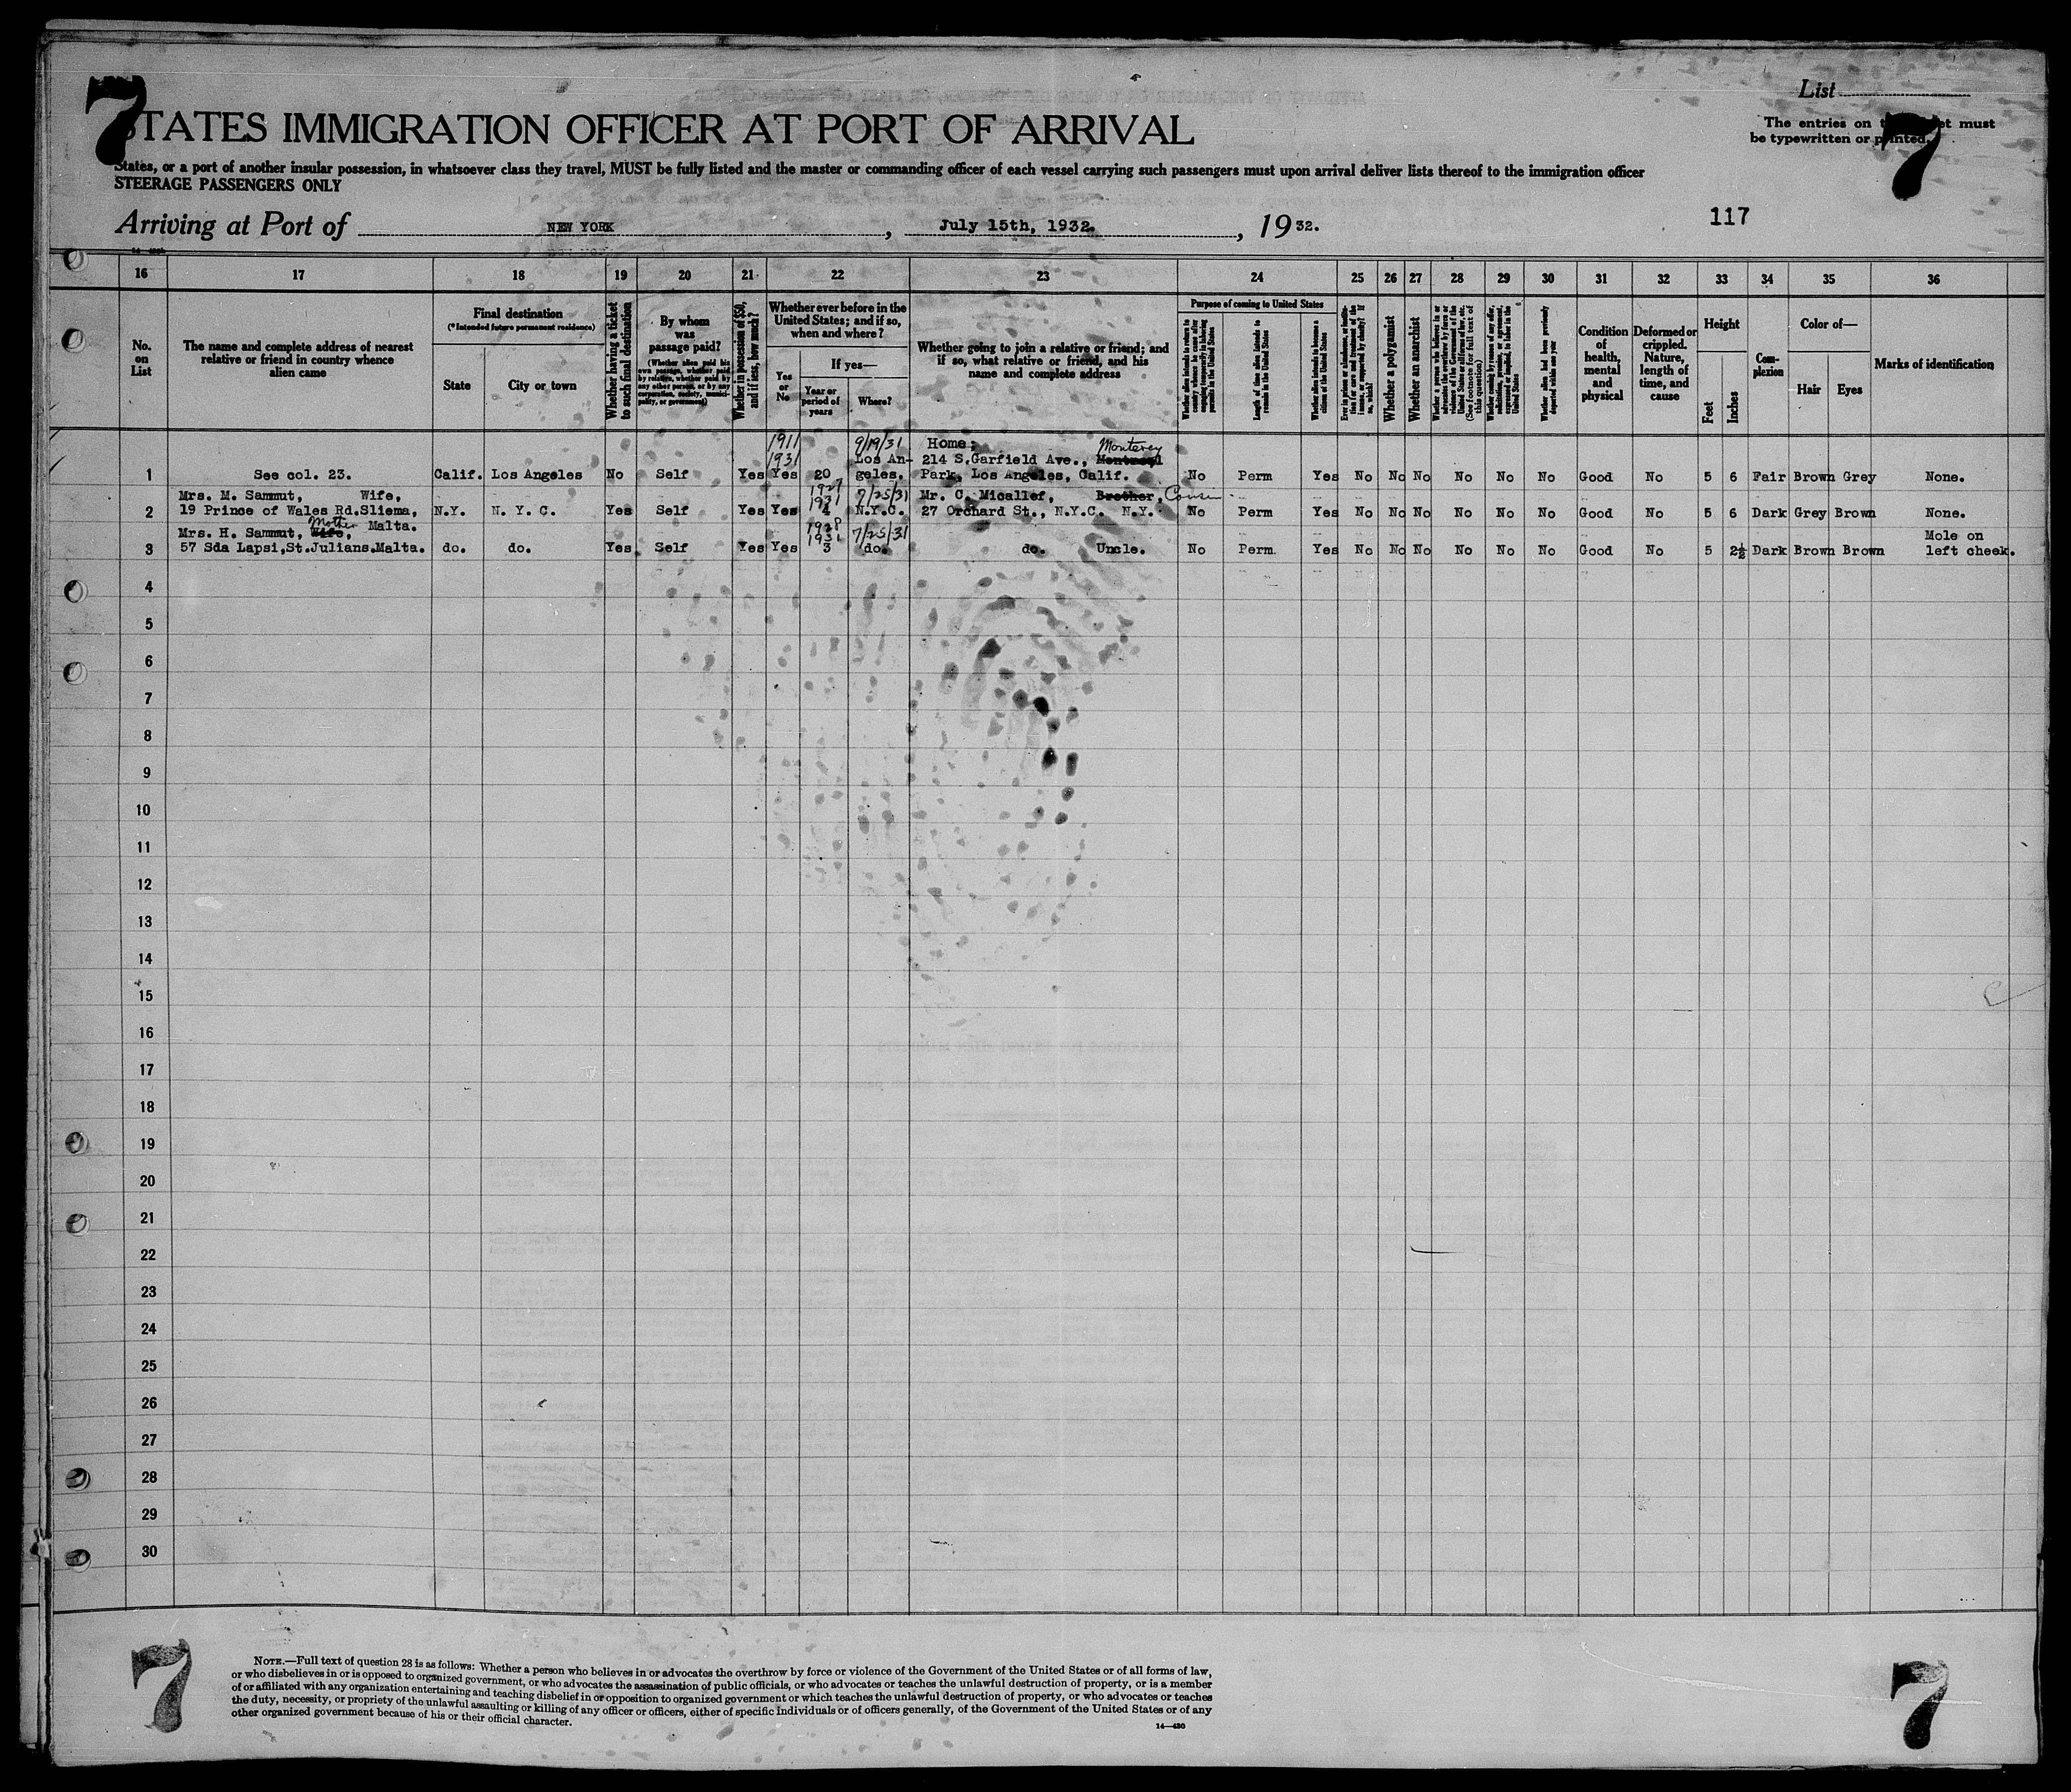 7
7
List
STATES IMMIGRATION OFFICER AT PORT OF ARRIVAL
The entries on must
be typewritten or printed.
States, or a port of another insular possession, in whatsoever class they travel, MUST be fully listed and the master or commanding officer of each vessel carrying such passengers must upon arrival deliver lists thereof to the immigration officer
STEERAGE PASSENGERS ONLY
Arriving at Port of NEW YORK, July 15th, 1932., 1932.
117
16 17 18 19 20 21 22 23 24 25 26 27 28 29 30 31 32 33 34 35 36
No. on List
The name and complete address of nearest relative or friend in country whence alien came
Final destination
(*Intended future permanent residence)
State
City or town
Whether having a ticket to such final destination
By whom was passage paid?
(Whether alien paid his own passage, whether paid by relative, whether paid by any other person, or by any corporation, society, municipality, or government)
Whether in possession of $50, and if less, how much?
Whether ever before in the United States; and if so, when and where?
Yes or No
If yes—
Year or period of years
Where?
Whether going to join a relative or friend; and if so, what relative or friend, and his name and complete address
Purpose of coming to United States
Whether alien intends to return to country whence he came after engaging temporarily in laboring pursuits in the United States
Length of time alien intends to remain in the United States
Whether alien intends to become a citizen of the United States
Ever in prison or almshouse, or institution for care and treatment of the insane, or supported by charity? If so, which?
Whether a polygamist
Whether an anarchist
Whether a person who believes in or advocates the overthrow by force or violence of the Government of the United States or all forms of law, etc. (See footnote for full text of this question)
Whether coming by reason of any offer, solicitation, promise, or agreement, expressed or implied, to labor in the United States
Whether alien had been previously deported within one year
Condition of health, mental and physical
Deformed or crippled. Nature, length of time, and cause
Height
Feet
Inches
Complexion
Color of—
Hair
Eyes
Marks of identification
1911 9/19/31 Home; Monterey
1931 Los An- 214 S.Garfield Ave., Montreal
1 See col. 23. Calif. Los Angeles No Self Yes Yes 20 geles. Park, Los Angeles, Calif. No Perm Yes No No No No No No Good No 5 6 Fair Brown Grey None.
Mrs. M. Sammut, Wife, 1927 1931 7/25/31 Mr. C. Micallef, Brother, Cousin
2 19 Prince of Wales Rd.Sliema, N.Y. N. Y. C. Yes Self Yes Yes 4 N.Y.C. 27 Orchard St., N.Y.C. N.Y. No Perm Yes No No No No No No Good No 5 6 Dark Grey Brown None.
Mother Malta.
Mrs. H. Sammut, Wife, 1928 1931 7/25/31 Mole on
3 57 Sda Lapsi,St.Julians.Malta. do. do. Yes Self Yes Yes 3 do. do. Uncle. No Perm. Yes No No No No No No Good No 5 2½ Dark Brown Brown left cheek.
4
5
6
7
8
9
10
11
12
13
14
15
16
17
18
19
20
21
22
23
24
25
26
27
28
29
30
7
7
NOTE.—Full text of question 28 is as follows: Whether a person who believes in or advocates the overthrow by force or violence of the Government of the United States or of all forms of law,
or who disbelieves in or is opposed to organized government, or who advocates the assassination of public officials, or who advocates or teaches the unlawful destruction of property, or is a member
of or affiliated with any organization entertaining and teaching disbelief in or opposition to organized government or which teaches the unlawful destruction of property, or who advocates or teaches
the duty, necessity, or propriety of the unlawful assaulting or killing of any officer or officers, either of specific individuals or of officers generally, of the Government of the United States or of any
other organized government because of his or their official character.
14—430